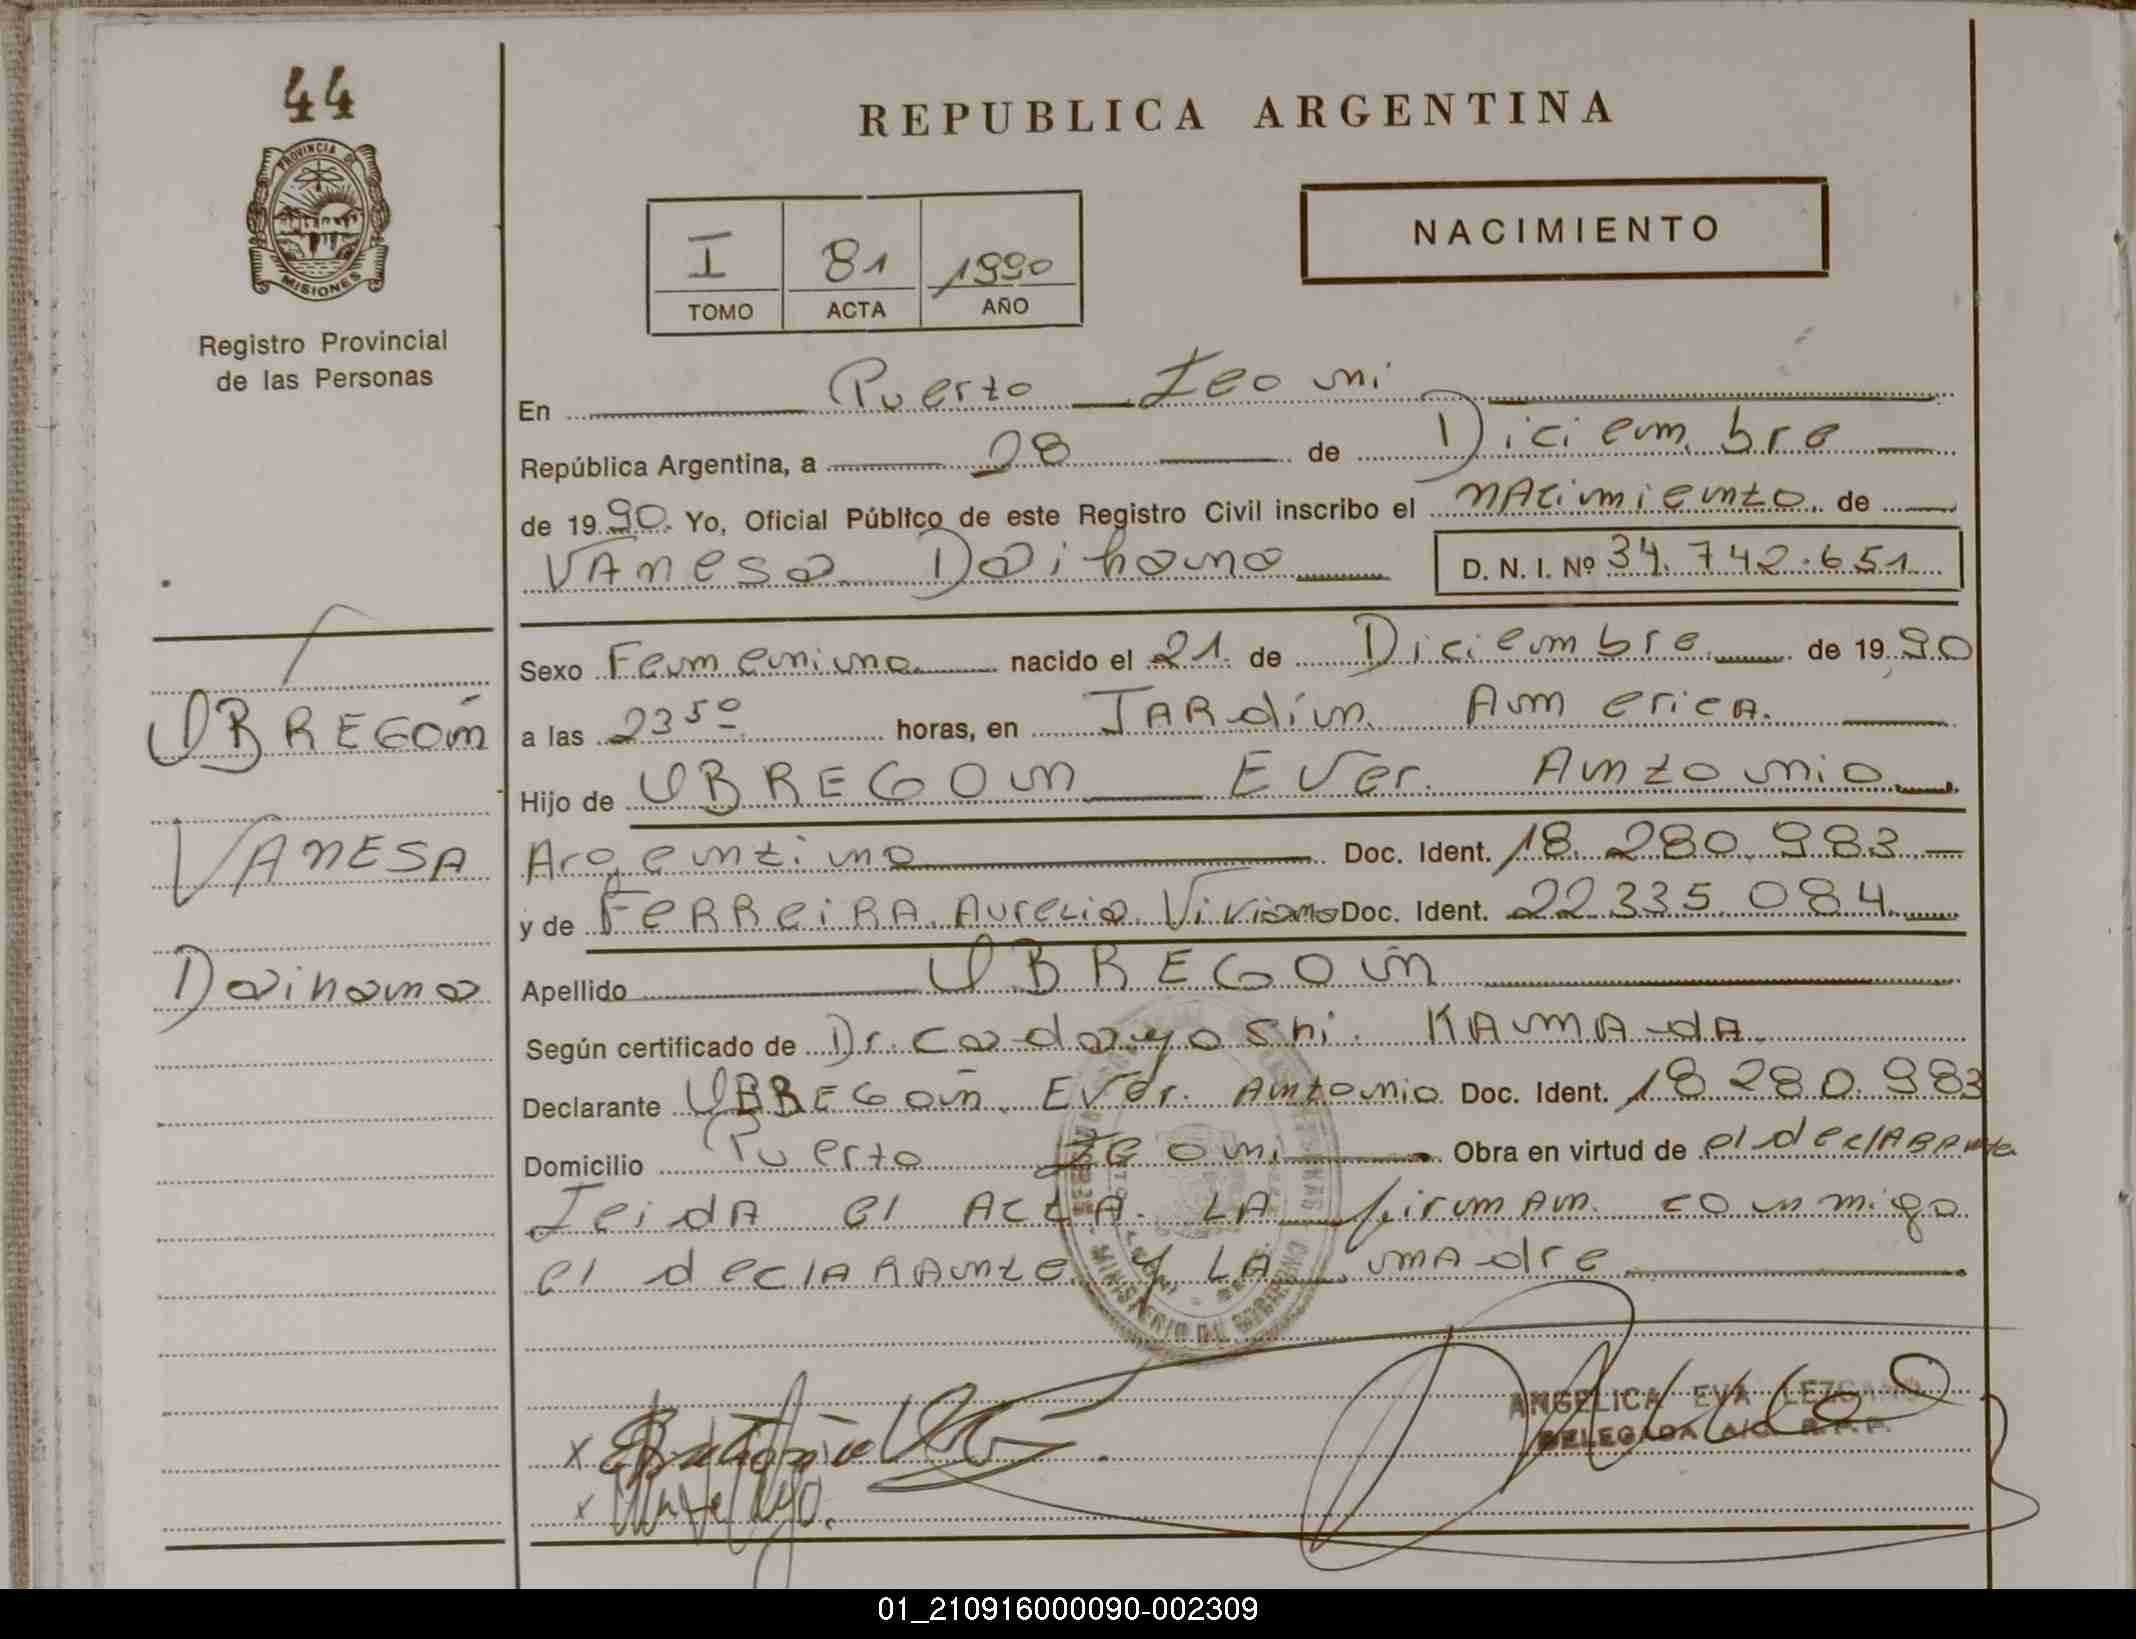 44
PROVINCIA DE
MISIONES
Registro Provincial
de las Personas
OBREGON
VANESA
Daihana
REPUBLICA ARGENTINA
NACIMIENTO
I 81 1990
TOMO ACTA AÑO
En Puerto Leoni
República Argentina, a 28 de Diciembre
de 1990 Yo, Oficial Público de este Registro Civil inscribo el nacimiento de
VAnesa Daihana D. N. I. Nº 34.742.651
Sexo Femenino nacido el 21 de Diciembre de 1990
a las 23 50 horas, en JARdín America
Hijo de OBREGON Ever Antonio
Argentino Doc. Ident. 18.280.983
y de FeRReiRA Aurelia Viviana Doc. Ident. 22.335.084
Apellido OBREGON
Según certificado de Dr. Cadayoshi KAMAdA
Declarante OBREGON Ever Antonio Doc. Ident. 18.280.983
Domicilio Puerto Leoni Obra en virtud de el declARAnte
Leida el ActA LA firmAn conmigo
el declARAnte y LA mAdre
MINISTERIO DE GOBIERNO
ANGELICA EVA LEZCANO
DELEGADA A/C R.P.P.
01_210916000090-002309